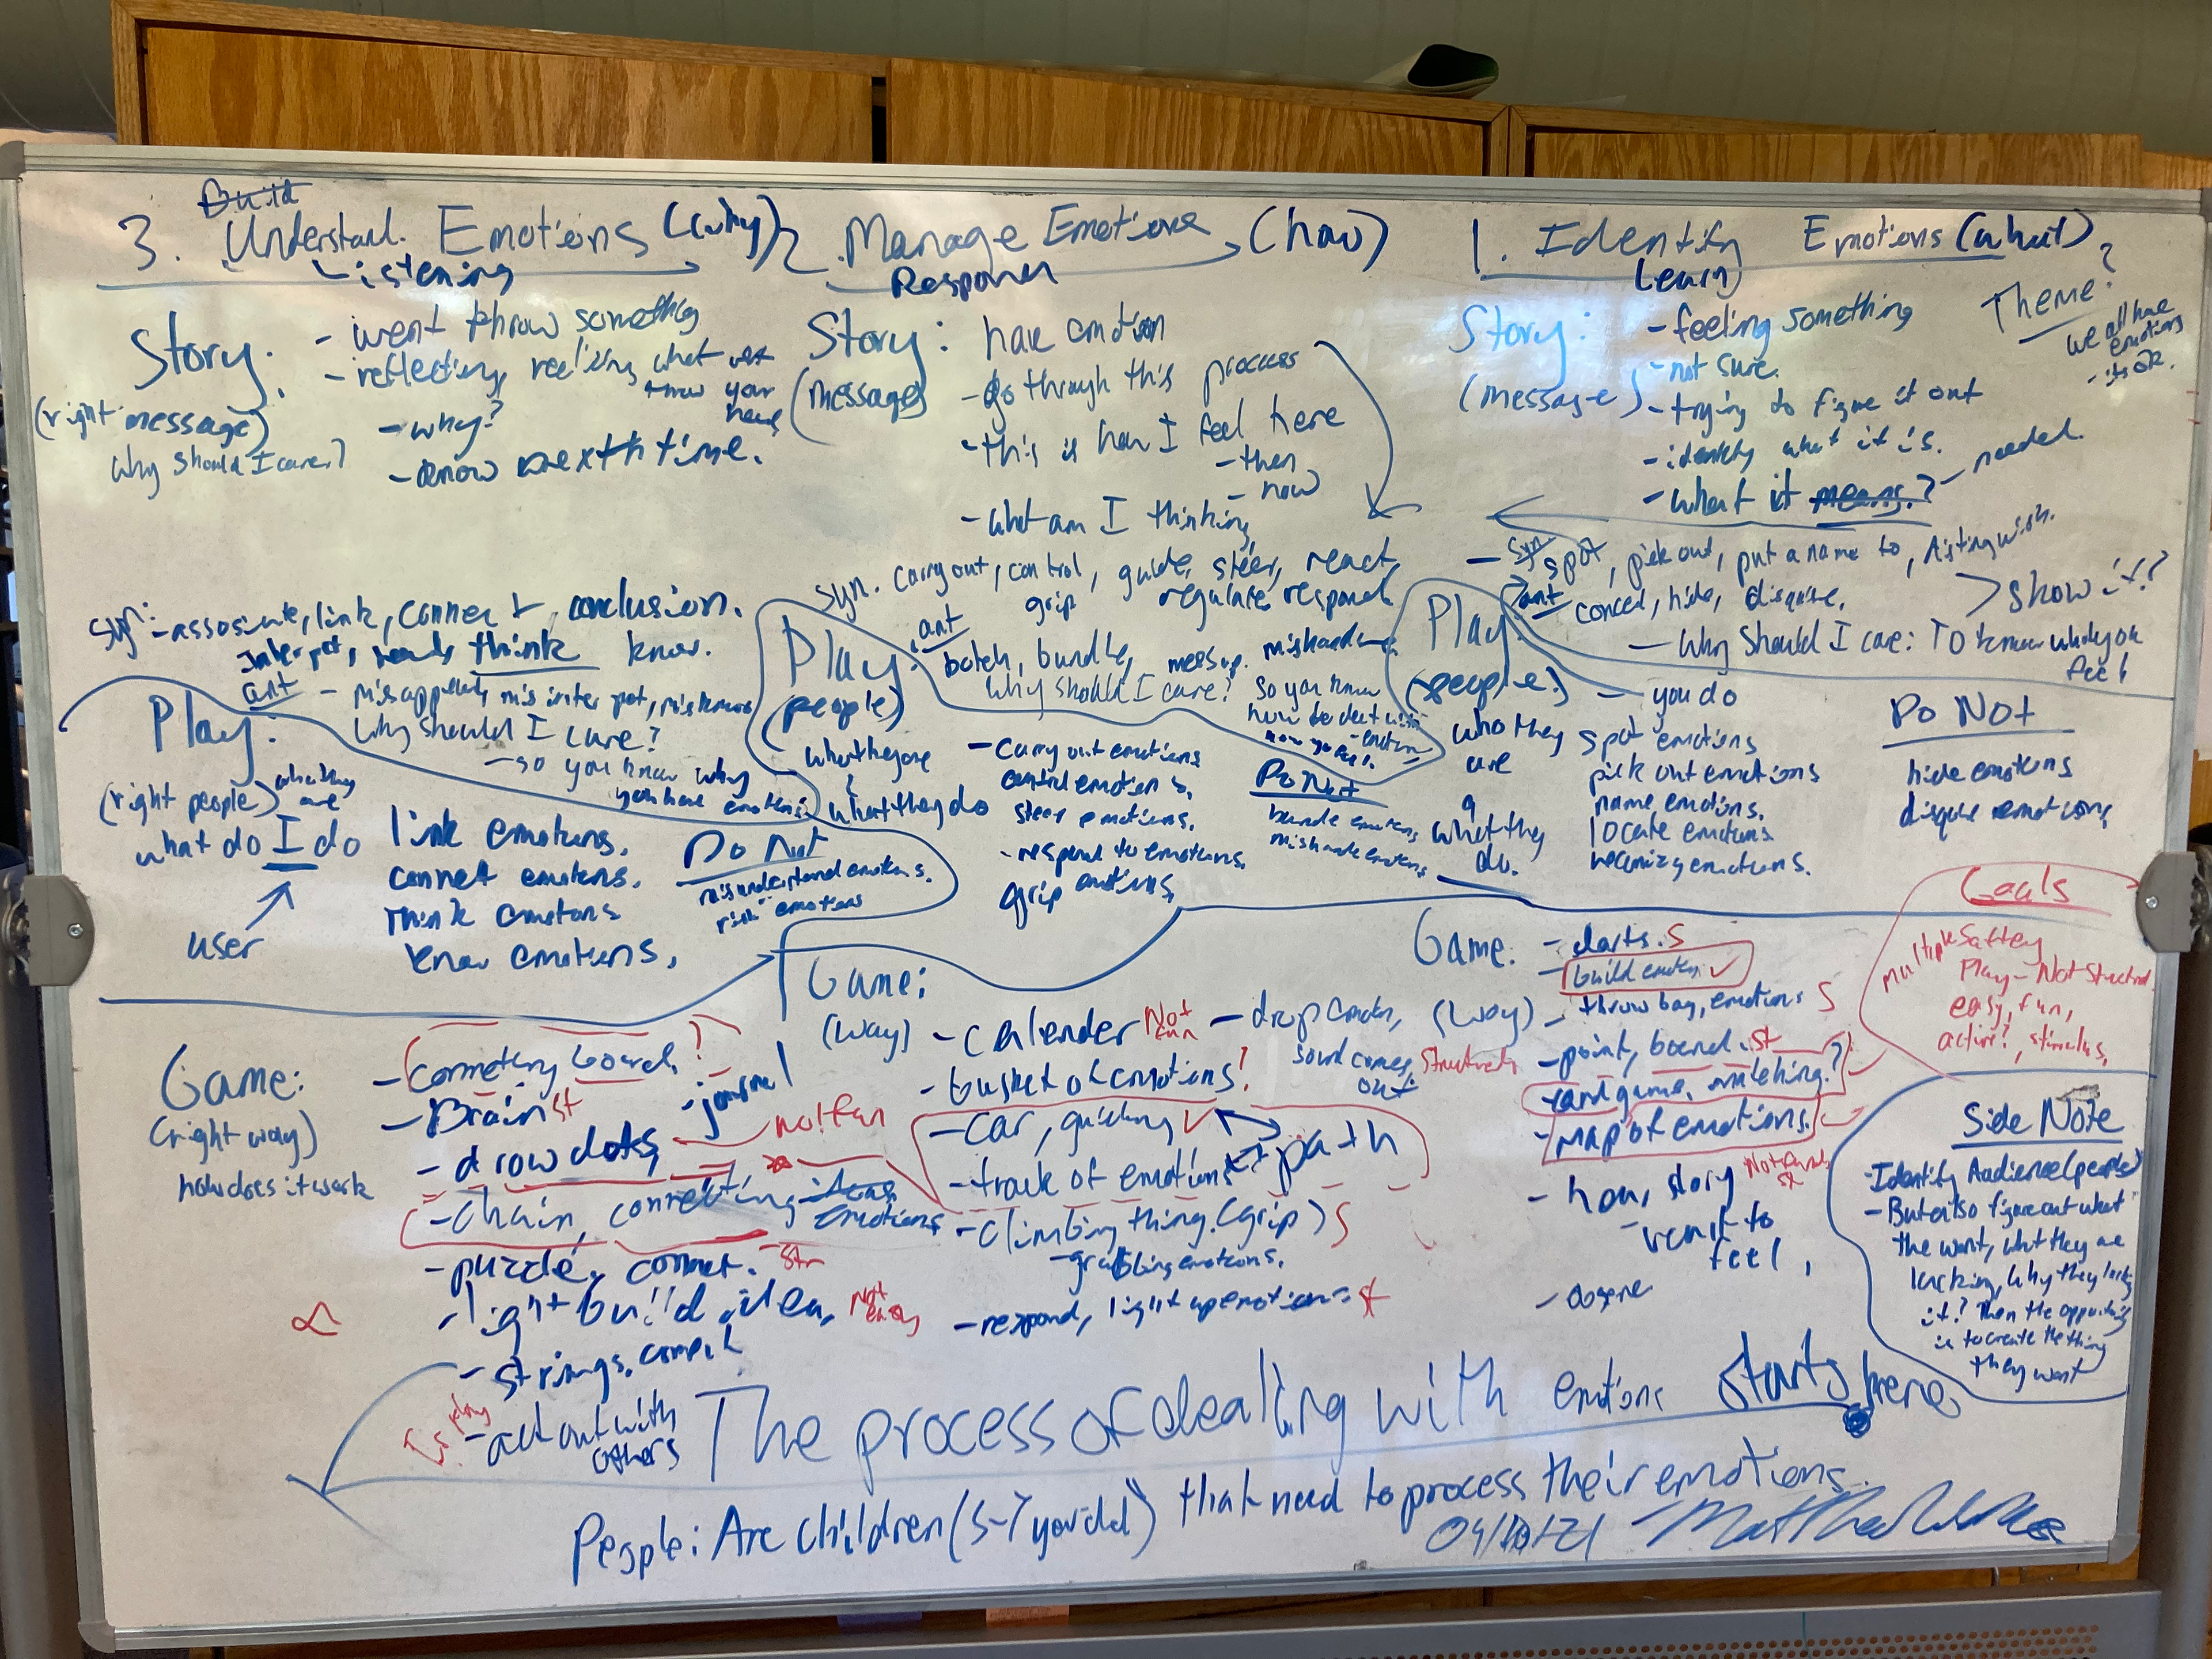 Build
3. Understand. Emotions (why)
Listening
Story:
(right message)
why should I care?
- went throw something
- reflecting, reelizing what
know your
- why?
- know nexth time.
syn: - assosiate, link, connect, conclusion.
think know.
ant
why should I care?
- so you know why
you have emotions
Play:
(right people)
what do I do
user
link emotions.
connet emotions.
think emotions
know emotions.
Do Not
misunderstand emotions.
emotions
Game:
(right way)
how does it work
- Brain st
- journal
- draw dots, not fun
- chain, connecting
emotions
- puzzle, connet. st
- light build idea, Not easy
- strings.
- act out with
others
2. Manage Emotions (how)
Response
Story:
(message)
have emotion
- go through this process
- this is how I feel here
- then
- now
- what am I thinking
syn. carry out, control, guide, steer, react,
grip regulate, respond
ant
botch, bundle, mess up. mishandle
why should I care? so you know
how to deal with
Play:
(people)
what they are
&
what they do
- carry out emotions
control emotions,
steer emotions.
- respond to emotions.
grip emotions,
Do Not
bundle emotions
mishandle emotions
Game:
(way)
- calender Not fun
- drop emotion,
sound comes out. structured
- busket of emotions?
- car, guiding ✓
- track of emotions path
- climbing thing. (grip) S
- grabbing emotions.
- respond, light up emotions st
1. Identify Emotions (what)
Learn
Theme?
- we all have
emotions
- its ok.
Story:
(message)
- feeling something
- not sure.
- trying to figure it out
- identify what it is.
- what it means.? - needed.
- syn spot, pick out, put a name to, distingwish.
ant conceal, hide, disquise.
> show it?
- Why should I care: To know why you
feel
Play:
(people)
who they
are
&
what they
do.
- you do
spot emotions
pick out emotions
name emotions.
locate emotions
recognize emotions.
Do Not
hide emotions
disquise emotions
Goals
multiple Saftey
Play - Not structured
easy, fun,
active?, stimulus,
Game:
(way)
- darts. S
- build emotion ✓
- throw bag, emotions S
- point, board. st
- card game, matching?
- map of emotions.
- hear, story Not fun st
- want to
feel,
Side Note
- Identify Audience (people)
- But also figure out what
the want, what they are
lacking, why they lack
it? Then the opportunity
is to create the thing
they want
The process of dealing with emotions starts here
People: Are children (5-7 year old) that need to process their emotions.